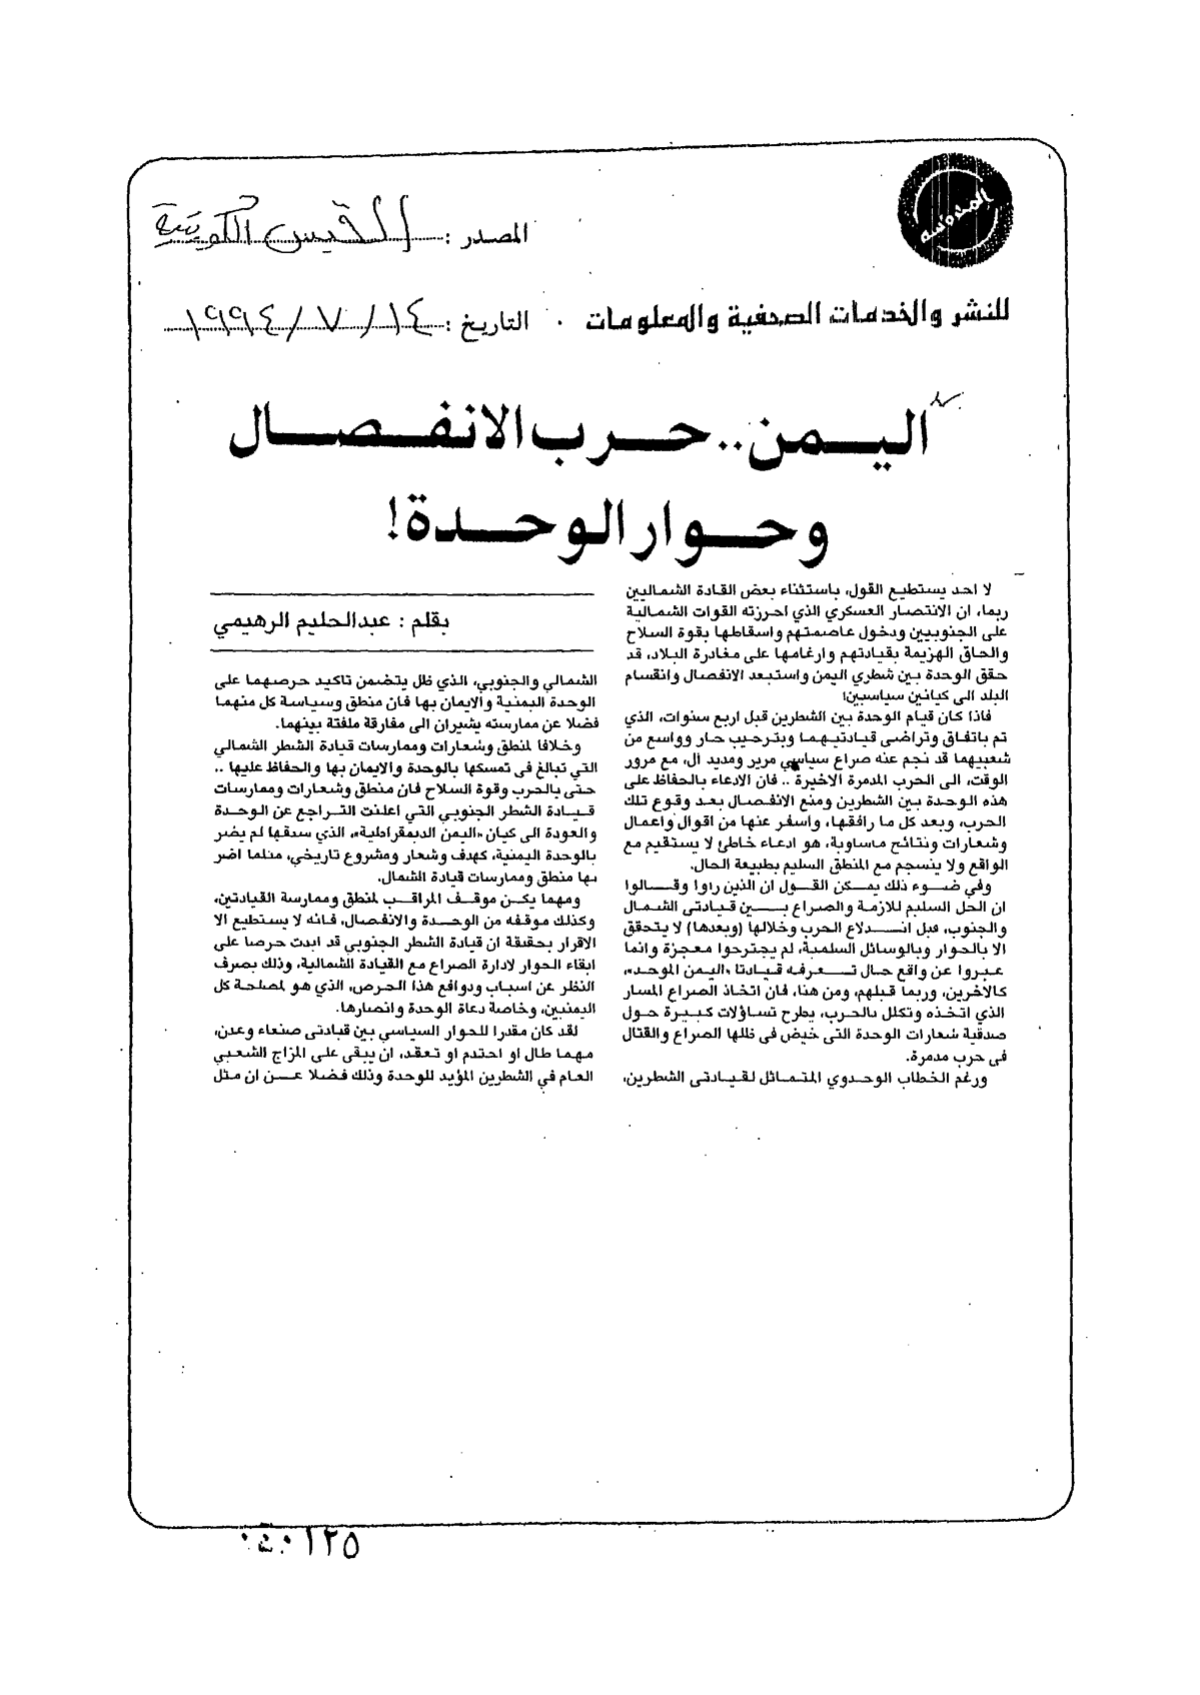 المدونة
المصدر : القبس الكويتية
للنشر والخدمات الصحفية والمعلومات
التاريخ : ١٤ / ٧ / ١٩٩٤
اليمن.. حرب الانفصال
وحوار الوحدة!
لا احد يستطيع القول، باستثناء بعض القادة الشماليين
ربما، ان الانتصار العسكري الذي احرزته القوات الشمالية
على الجنوبيين ودخول عاصمتهم واسقاطها بقوة السلاح
والحاق الهزيمة بقيادتهم وارغامها على مغادرة البلاد، قد
حقق الوحدة بين شطري اليمن واستبعد الانفصال وانقسام
البلد الى كيانين سياسيين!
فاذا كان قيام الوحدة بين الشطرين قبل اربع سنوات، الذي
تم باتفاق وتراضى قيادتيهما وبترحيب حار وواسع من
شعبيهما قد نجم عنه صراع سياسي مرير ومديد آل، مع مرور
الوقت، الى الحرب المدمرة الاخيرة .. فان الادعاء بالحفاظ على
هذه الوحدة بين الشطرين ومنع الانفصال بعد وقوع تلك
الحرب، وبعد كل ما رافقها، واسفر عنها من اقوال واعمال
وشعارات ونتائج ماساوية، هو ادعاء خاطئ لا يستقيم مع
الواقع ولا ينسجم مع المنطق السليم بطبيعة الحال.
وفي ضوء ذلك يمكن القول ان الذين راوا وقالوا
ان الحل السليم للازمة والصراع بين قيادتى الشمال
والجنوب، قبل اندلاع الحرب وخلالها (وبعدها) لا يتحقق
الا بالحوار وبالوسائل السلمية، لم يجترحوا معجزة وانما
عبروا عن واقع حال تعرفه قيادتا «اليمن الموحد»،
كالاخرين، وربما قبلهم، ومن هنا، فان اتخاذ الصراع المسار
الذي اتخذه وتكلل بالحرب، يطرح تساؤلات كبيرة حول
صدقية شعارات الوحدة التى خيض فى ظلها الصراع والقتال
فى حرب مدمرة.
ورغم الخطاب الوحدوي المتماثل لقيادتى الشطرين،
بقلم : عبدالحليم الرهيمي
الشمالي والجنوبي، الذي ظل يتضمن تاكيد حرصهما على
الوحدة اليمنية والايمان بها فان منطق وسياسة كل منهما
فضلا عن ممارسته يشيران الى مفارقة ملفتة بينهما.
وخلافا لمنطق وشعارات وممارسات قيادة الشطر الشمالي
التي تبالغ فى تمسكها بالوحدة والايمان بها والحفاظ عليها ..
حتى بالحرب وقوة السلاح فان منطق وشعارات وممارسات
قيادة الشطر الجنوبي التي اعلنت التراجع عن الوحدة
والعودة الى كيان «اليمن الديمقراطية»، الذي سبقها لم يضر
بالوحدة اليمنية، كهدف وشعار ومشروع تاريخي، مثلما اضر
بها منطق وممارسات قيادة الشمال.
ومهما يكن موقف المراقب لمنطق وممارسة القيادتين،
وكذلك موقفه من الوحدة والانفصال، فانه لا يستطيع الا
الاقرار بحقيقة ان قيادة الشطر الجنوبي قد ابدت حرصا على
ابقاء الحوار لادارة الصراع مع القيادة الشمالية، وذلك بصرف
النظر عن اسباب ودوافع هذا الحرص، الذي هو لمصلحة كل
اليمنيين، وخاصة دعاة الوحدة وانصارها.
لقد كان مقدرا للحوار السياسي بين قيادتى صنعاء وعدن،
مهما طال او احتدم او تعقد، ان يبقى على المزاج الشعبي
العام في الشطرين المؤيد للوحدة وذلك فضلا عن ان مثل